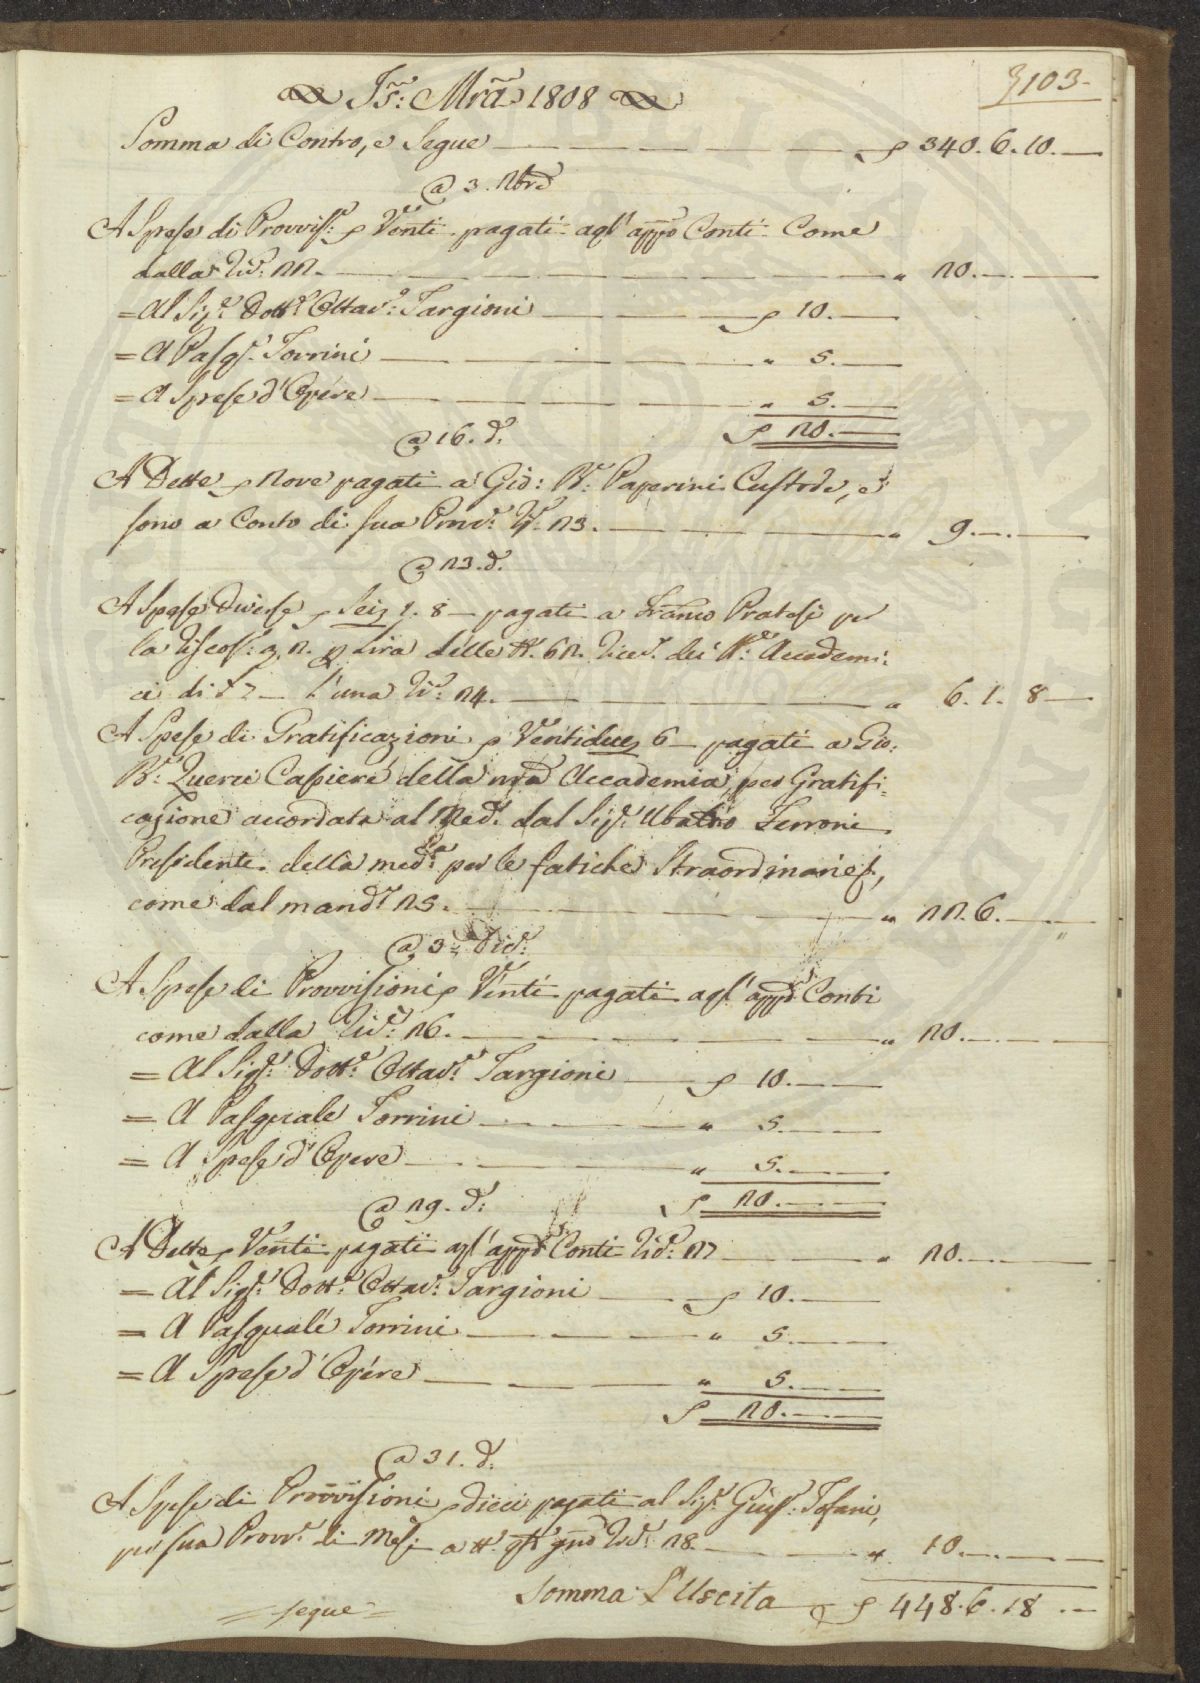 103
Js: Mrã 1808
Somma di Contro, e Segue — 340. 6. 10. —
a 3. Nbre
A Spese di Provvis: p Venti pagati agl' appo Conti Come
dalla Tiv: 22. — " 20. —
= Al Sig.e Dott.e Ottav.o: Targioni — 10. —
= A Pasq.l Torrini — " 5. —
= A Spese d'Opere — " 5. —
20. —
a 16. d.
A Dette p Nove pagati a Gio: Bt: Paperini Custode, e
sono a Conto di sua Prov: 23. — " 9. —
a 23. d.
A Spese Diverse p Sei 1. 8 — pagati a Franco Pratesi per
la Riscos: 2. Lira delle 62. dei Accademi:
ci di 7 — l'una 24. — " 6. 1. 8 —
A Spese di Gratificazioni p Ventidue 6 — pagati a Gio:
Bt: Querci Cassiere della nra Accademia, per Gratifi:
cazione accordata al Med: dal Sig: Ubaldo Ferroni
Presidente della med:a per le fatiche Straordinarie,
come dal mand:o 25. — " 22. 6. —
a 3 Dic:
A Spese di Provvisioni p Venti pagati agl' appo Conti
come dalla 26. — " 20. —
= Al Sig: Dott: Ottav: Targioni — 10. —
= A Pasquale Torrini — " 5. —
= A Spese d'Opere — " 5. —
20. —
a 29. d:
A Dette p Venti pagati agl' appo Conti 27 — " 20. —
= Al Sig: Dott: Ottav: Targioni — 10. —
= A Pasquale Torrini — " 5. —
= A Spese d'Opere — " 5. —
20. —
a 31. d.
A Spese di Provvisioni p dieci pagati al Sig: Gius: Tofani,
per sua Provv: di Mesi a 28. — " 10. —
Somma L'Uscita — 448. 6. 18. —
= segue =